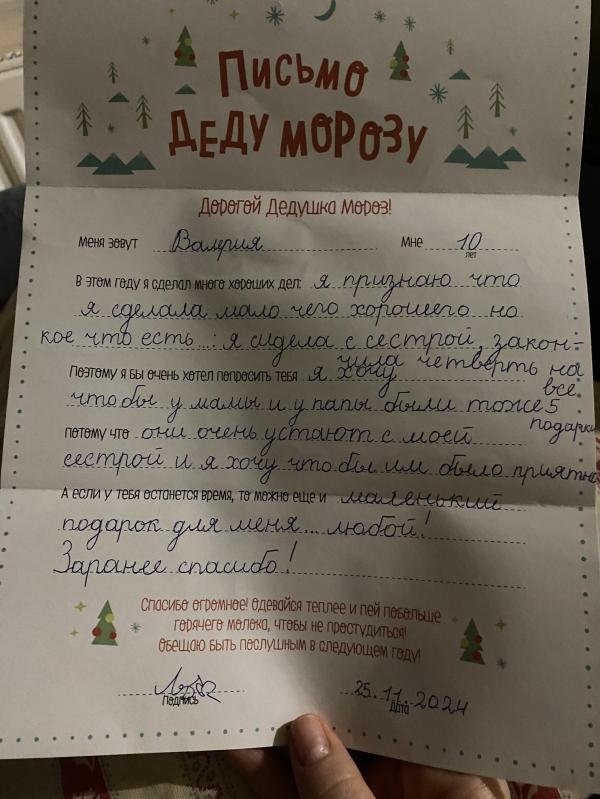 Письмо
Деду Морозу
Дорогой Дедушка Мороз!
Меня зовут Валерия Мне 10
лет
В этом году я сделал много хороших дел: я признаю что
я сделала мало чего хорошего но
кое что есть...: я сидела с сестрой, закон-
чила четверть на
все 5
Поэтому я бы очень хотел попросить тебя я хочу
чтобы у мамы и у папы были тоже подарки
потому что они очень устают с моей
сестрой и я хочу чтобы им было приятно
А если у тебя останется время, то можно еще и маленький
подарок для меня... любой!
Заранее спасибо!
Спасибо огромное! Одевайся теплее и пей побольше
горячего молока, чтобы не простудиться!
Обещаю быть послушным в следующем году!
Подпись
25.11.2024
Дата